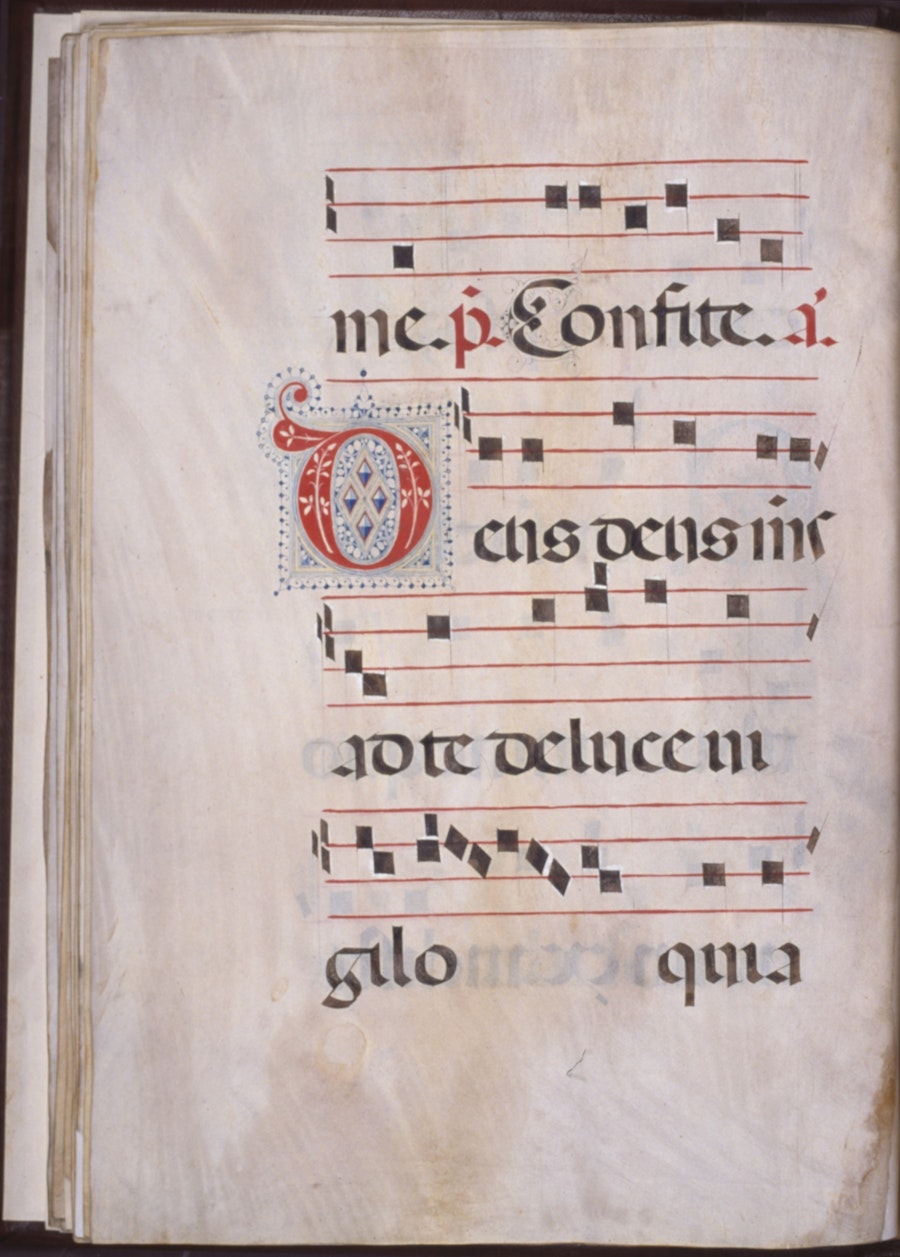 me. p̄. Confite. a̾.
Deus deus m̄s
ad te de luce ui
gilo quia